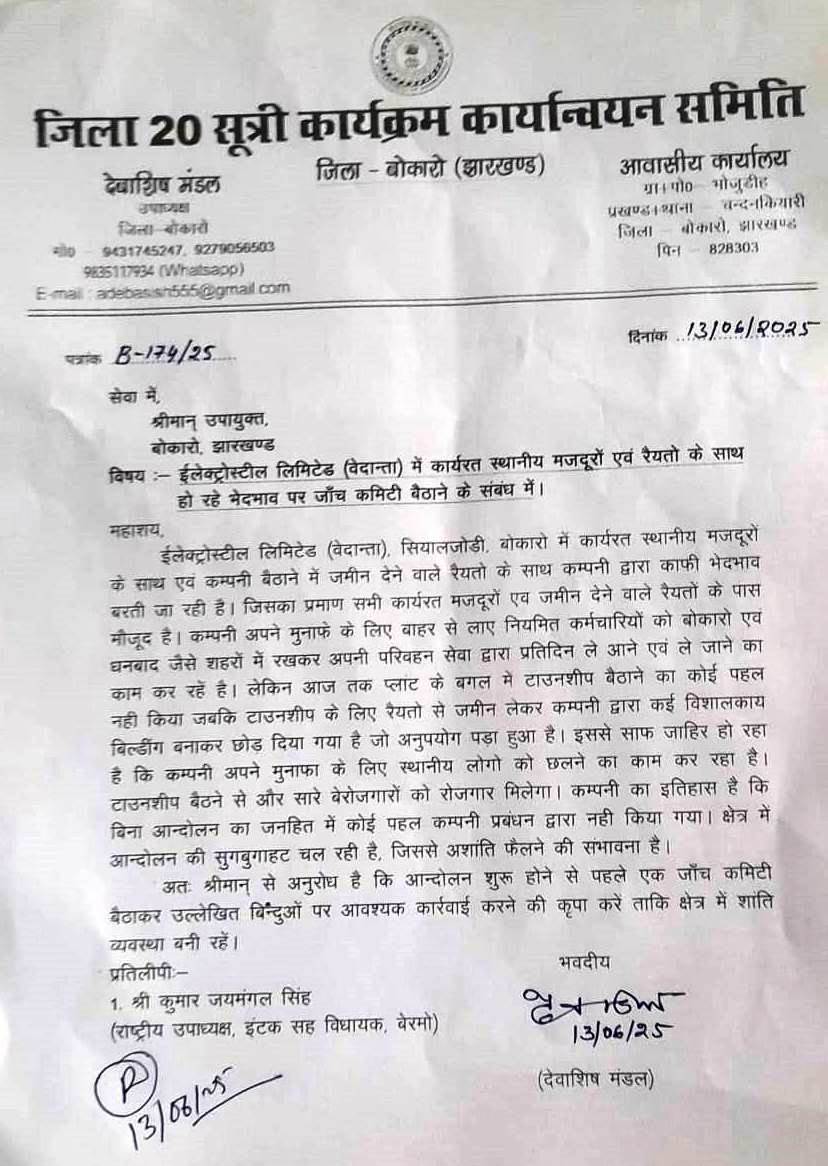 जिला 20 सूत्री कार्यक्रम कार्यान्वयन समिति
जिला – बोकारो (झारखण्ड)
देबाशिष मंडल
उपाध्यक्ष
जिला-बोकारो
मो0 – 9431745247, 9279056503
9835117934 (Whatsapp)
E-mail : adebasish555@gmail.com
आवासीय कार्यालय
ग्रा+पो0 – भोजुडीह
प्रखण्ड+थाना – चन्दनकियारी
जिला – बोकारो, झारखण्ड
पिन – 828303
पत्रांक B-174/25
दिनांक 13/06/2025
सेवा में,
श्रीमान् उपायुक्त,
बोकारो, झारखण्ड
विषय :– ईलेक्ट्रोस्टील लिमिटेड (वेदान्ता) में कार्यरत स्थानीय मजदूरों एवं रैयतो के साथ
हो रहे भेदभाव पर जाँच कमिटी बैठाने के संबंध में।
महाशय,
ईलेक्ट्रोस्टील लिमिटेड (वेदान्ता), सियालजोडी, बोकारो में कार्यरत स्थानीय मजदूरों
के साथ एवं कम्पनी बैठाने में जमीन देने वाले रैयतो के साथ कम्पनी द्वारा काफी भेदभाव
बरती जा रही है। जिसका प्रमाण सभी कार्यरत मजदूरों एव जमीन देने वाले रैयतों के पास
मौजूद है। कम्पनी अपने मुनाफे के लिए बाहर से लाए नियमित कर्मचारियों को बोकारो एवं
धनबाद जैसे शहरों में रखकर अपनी परिवहन सेवा द्वारा प्रतिदिन ले आने एवं ले जाने का
काम कर रहें है। लेकिन आज तक प्लांट के बगल में टाउनशीप बैठाने का कोई पहल
नही किया जबकि टाउनशीप के लिए रैयतो से जमीन लेकर कम्पनी द्वारा कई विशालकाय
बिल्डींग बनाकर छोड़ दिया गया है जो अनुपयोग पड़ा हुआ है। इससे साफ जाहिर हो रहा
है कि कम्पनी अपने मुनाफा के लिए स्थानीय लोगो को छलने का काम कर रहा है।
टाउनशीप बैठने से और सारे बेरोजगारों को रोजगार मिलेगा। कम्पनी का इतिहास है कि
बिना आन्दोलन का जनहित में कोई पहल कम्पनी प्रबंधन द्वारा नही किया गया। क्षेत्र में
आन्दोलन की सुगबुगाहट चल रही है, जिससे अशांति फैलने की संभावना है।
अतः श्रीमान् से अनुरोध है कि आन्दोलन शुरू होने से पहले एक जाँच कमिटी
बैठाकर उल्लेखित बिन्दुओं पर आवश्यक कार्रवाई करने की कृपा करें ताकि क्षेत्र में शांति
व्यवस्था बनी रहें।
प्रतिलीपी:–
1. श्री कुमार जयमंगल सिंह
(राष्ट्रीय उपाध्यक्ष, इंटक सह विधायक, बेरमो)
भवदीय
13/06/25
(देवाशिष मंडल)
13/06/25